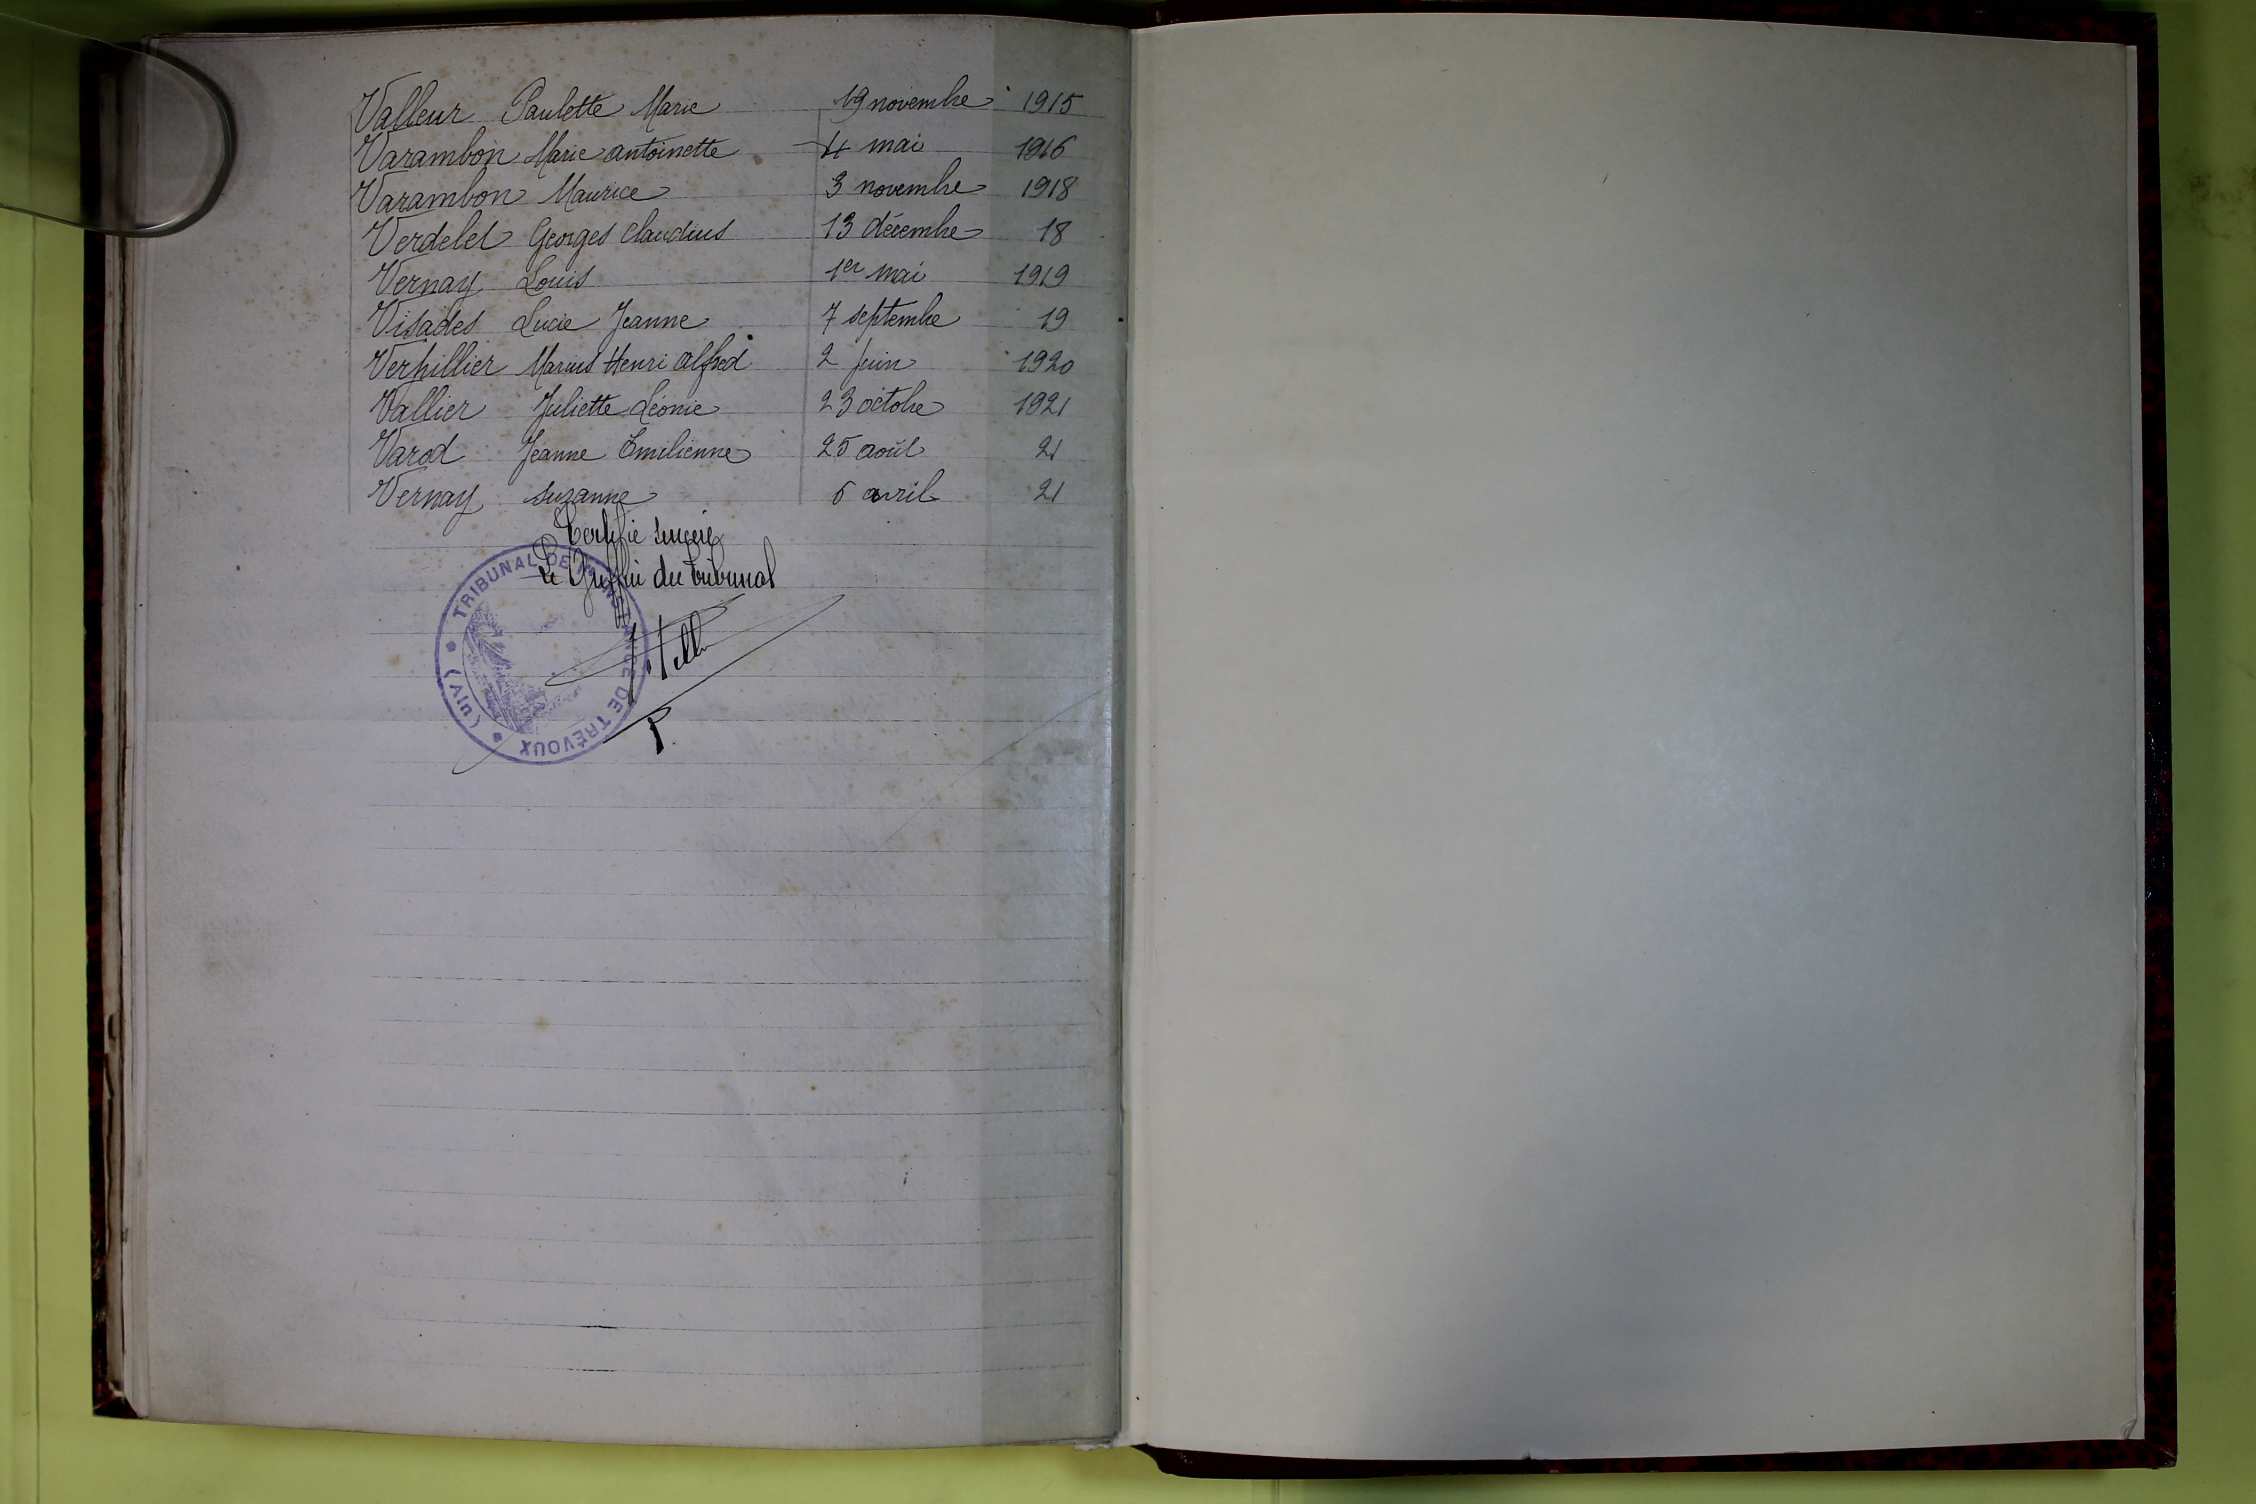 Valleur Paulette Marie 19 novembre 1915
Varambon Marie antoinette 4 mai 1916
Varambon Maurice 3 novembre 1918
Verdelet Georges Claudius 13 décembre 18
Vernay Louis 1er mai 1919
Visades Lucie Jeanne 7 septembre 19
Verhillier Marius Henri alfred 2 Juin 1920
Vallier Juliette Léonie 23 octobre 1921
Varod Jeanne Emilienne 25 août 21
Vernay suzanne 6 avril 21
Certifié sincère
Le Greffier du Tribunal
TRIBUNAL DE INSTANCE DE TRÉVOUX
(AIN)